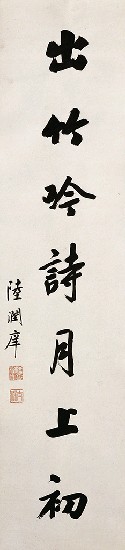 出竹吟詩月上初
陸潤庠